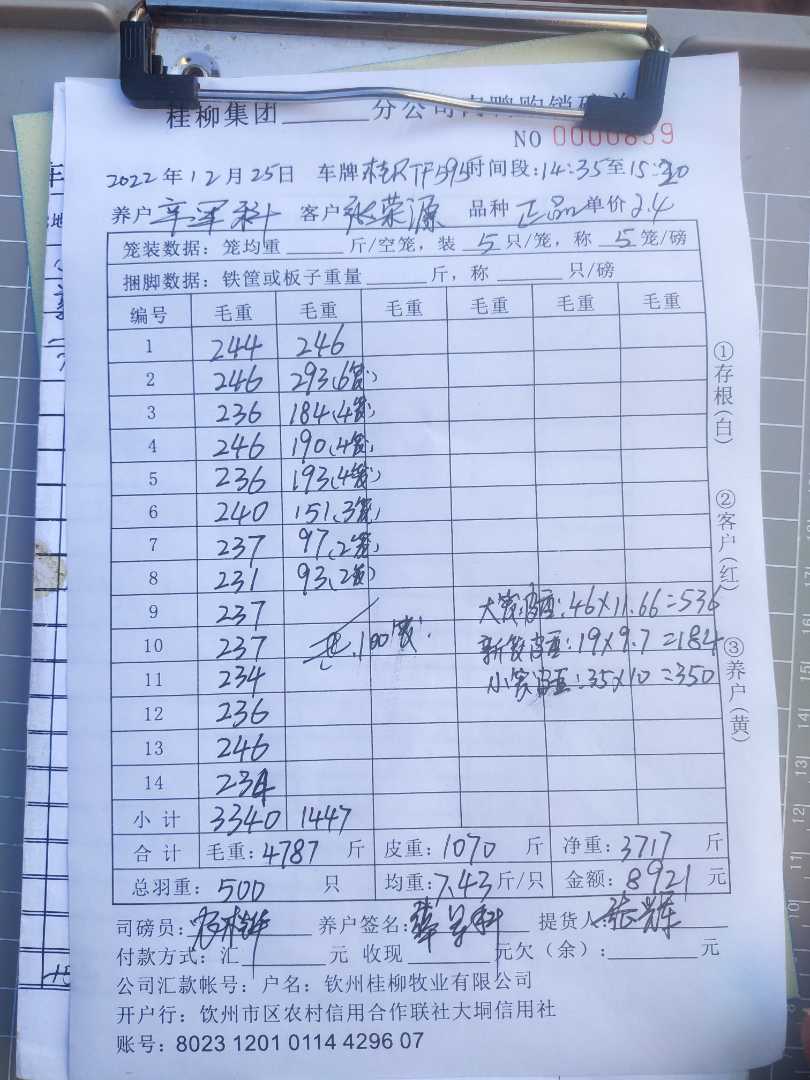 桂柳集团______分公司肉鸭购销磅单
NO 0000859
2022年12月25日 车牌桂RTF595时间段:14:35至15:20
养户 客户张荣源 品种正品单价2.4
笼装数据：笼均重______斤/空笼，装5只/笼，称5笼/磅
捆脚数据：铁筐或板子重量______斤，称______只/磅
编号 毛重 毛重 毛重 毛重 毛重 毛重
1 244 246
2 246 293(6笼)
3 236 184(4笼)
4 246 190(4笼)
5 236 193(4笼)
6 240 151(3笼)
7 237 97(2笼)
8 231 93(2笼)
9 237 大笼皮重:46×11.66=536
10 237 共100笼. 新笼皮重:19×9.7=184
11 234 小笼皮重:35×10=350
12 236
13 246
14 234
小计 3340 1447
合计 毛重:4787 斤 皮重:1070 斤 净重:3717 斤
总羽重:500 只 均重:7.43斤/只 金额:8921元
司磅员: 养户签名: 提货人:
付款方式:汇______元 收现______元欠(余):______元
公司汇款帐号：户名：钦州桂柳牧业有限公司
开户行：钦州市区农村信用合作联社大垌信用社
账号：8023 1201 0114 4296 07
①存根(白)
②客户(红)
③养户(黄)